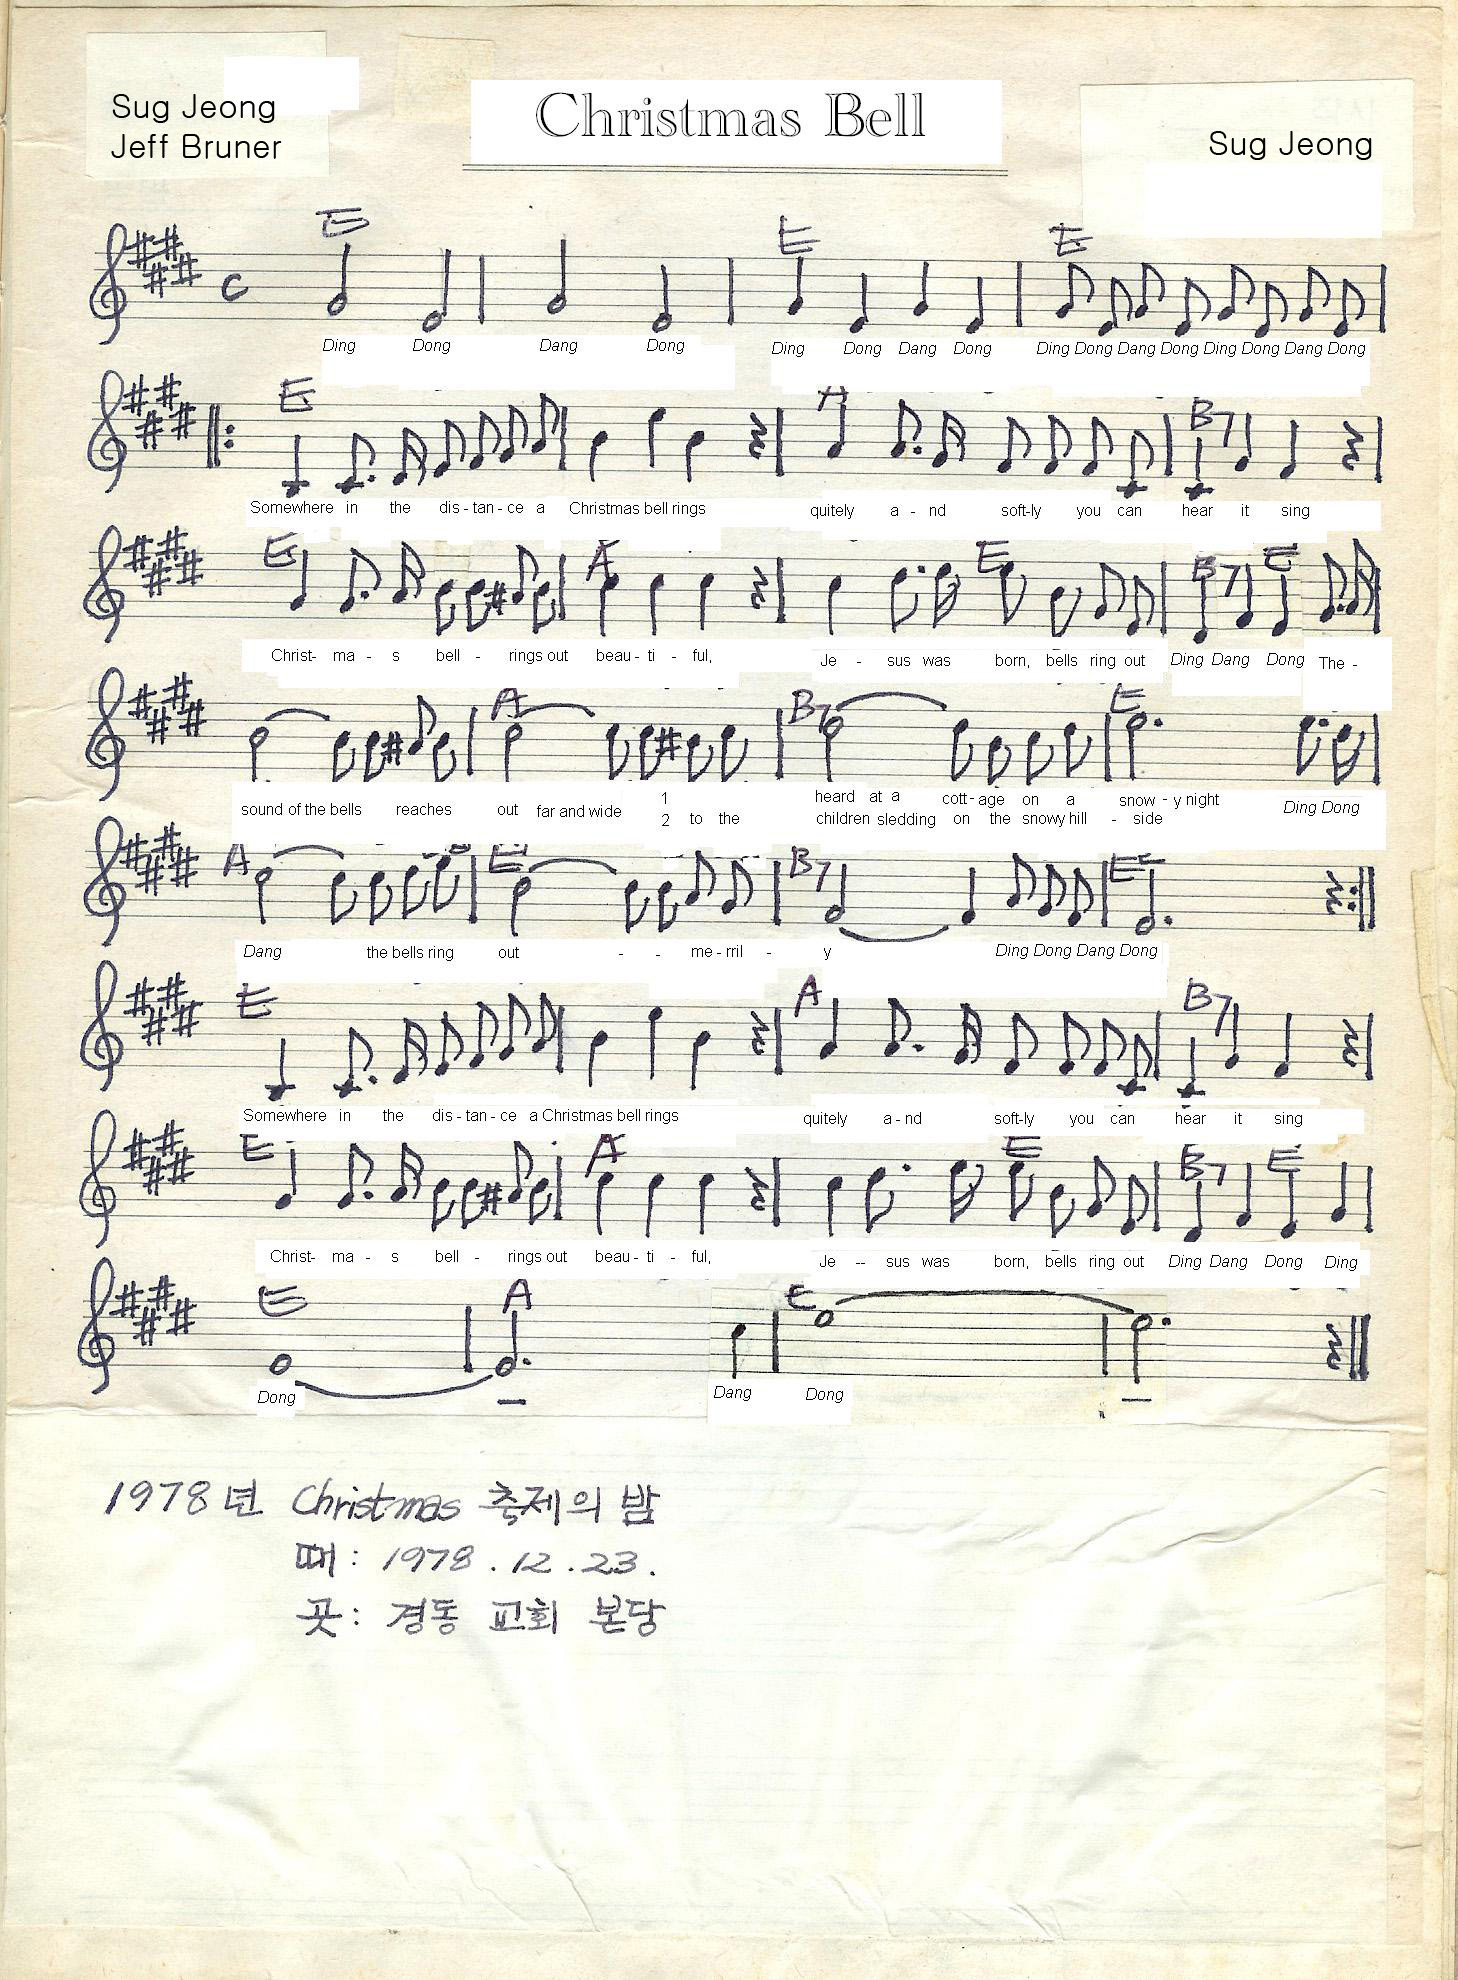 Sug Jeong
Jeff Bruner
Christmas Bell
Sug Jeong
E E E
C
Ding Dong Dang Dong Ding Dong Dang Dong Ding Dong Dang Dong Ding Dong Dang Dong
E A B7
Somewhere in the dis - tan - ce a Christmas bell rings quitely a - nd soft-ly you can hear it sing
E A E B7 E
Christ- ma - s bell - rings out beau - ti - ful, Je - sus was born, bells ring out Ding Dang Dong The -
A B7 E
sound of the bells reaches out far and wide 1 heard at a cott - age on a snow - y night Ding Dong
2 to the children sledding on the snowy hill - side
A E B7 E
Dang the bells ring out - - me - rril - y Ding Dong Dang Dong
E A B7
Somewhere in the dis - tan - ce a Christmas bell rings quitely a - nd soft-ly you can hear it sing
E A E B7 E
Christ- ma - s bell - rings out beau - ti - ful, Je -- sus was born, bells ring out Ding Dang Dong Ding
E A E
Dong Dang Dong
1978년 Christmas 축제의 밤
때: 1978. 12. 23.
곳: 경동 교회 본당